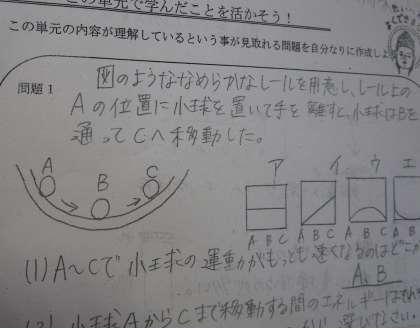 この単元で学んだことを活かそう!
この単元の内容が理解しているという事が見取れる問題を自分なりに作成しよ
問題1
図のようななめらかなレールを用意し、レール上の
Aの位置に小球を置いて手を離すと、小球はBを
通ってCへ移動した。
A B C
ア イ ウ エ
A B C A B C A B C A B
(1) A~Cで小球の運動がもっとも速くなるのはどこか
A, B
(2) 小球AからCまで移動する間のエネルギーは